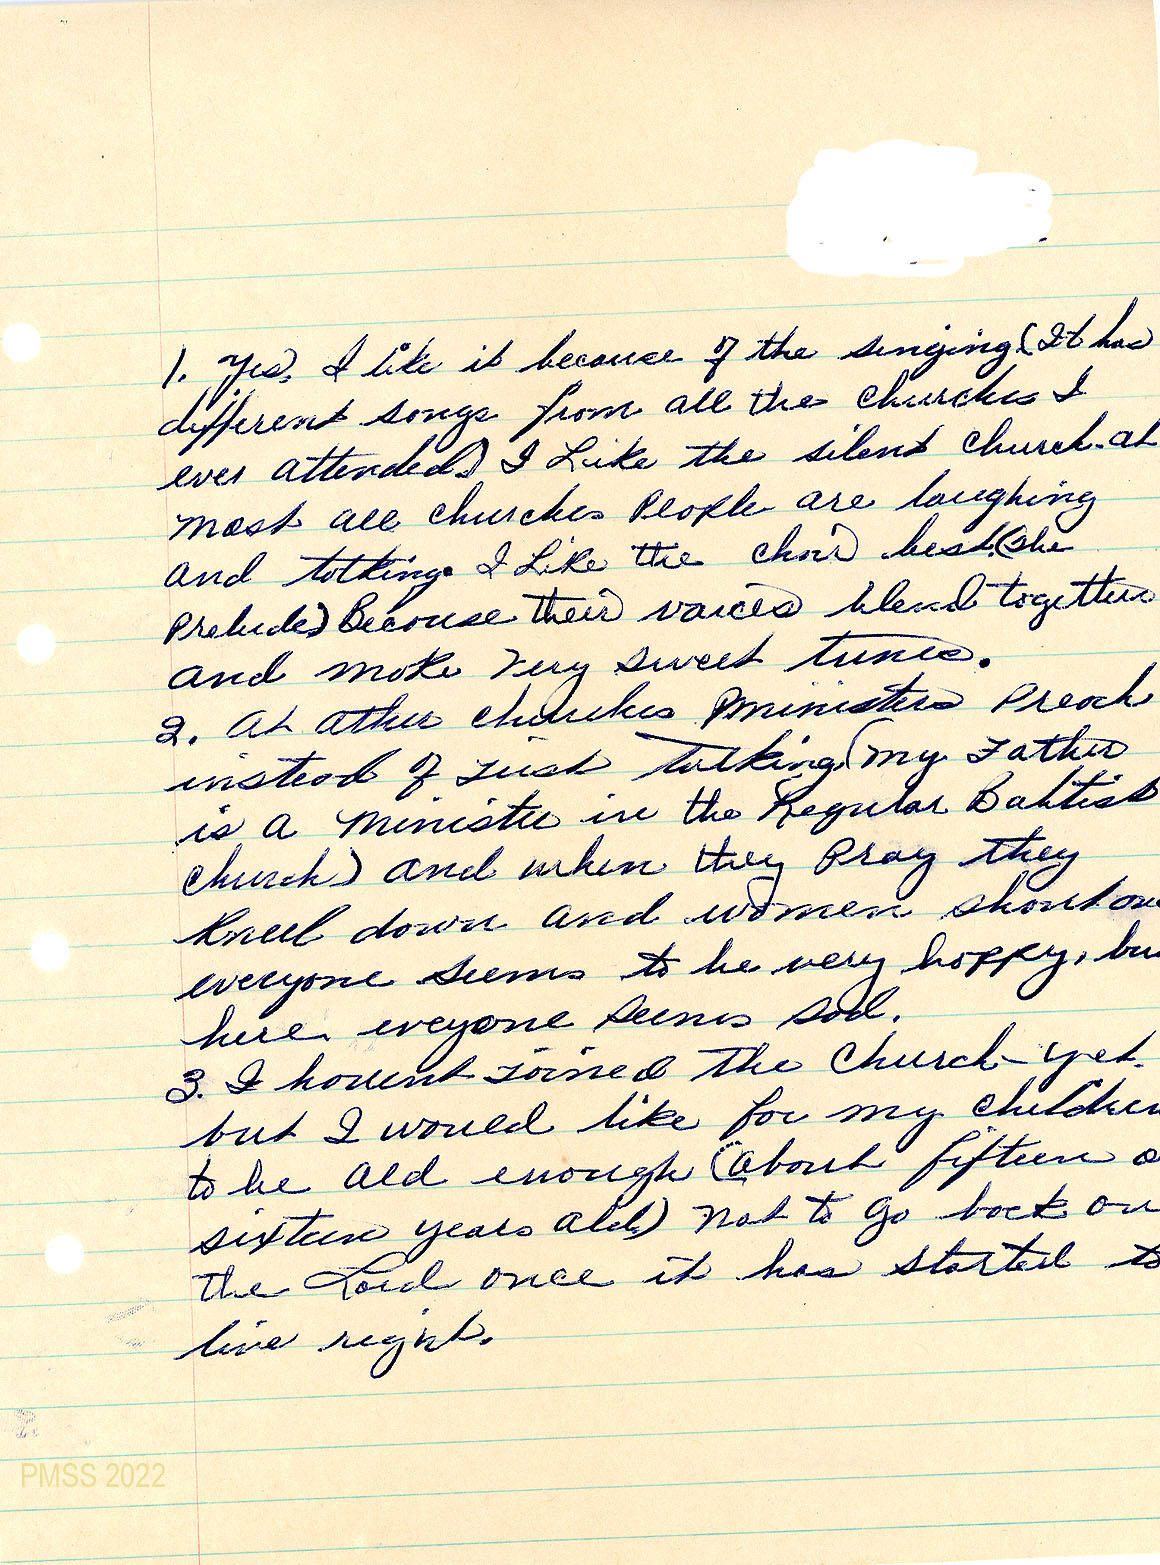 1. Yes, I like it because of the singing. (It has
different songs from all the churches I
ever attended.) I Like the silent church. at
most all churches People are laughing
and talking. I Like the choir best. (the
Prelude) Because their voices blend together
and make very sweet tunes.
2. At other churches ministers Preach
instead of just talking (my Father
is a minister in the Regular Babtist
church) and when they Pray they
kneel down and women shout an
everyone seems to be very happy, bu
here. eveyone seems sad.
3. I havent joined the church yet.
but I would like for my children
to be old enough (about fifteen o
sixteen years old.) Not to go back on
the Lord once it has started to
live right.
PMSS 2022